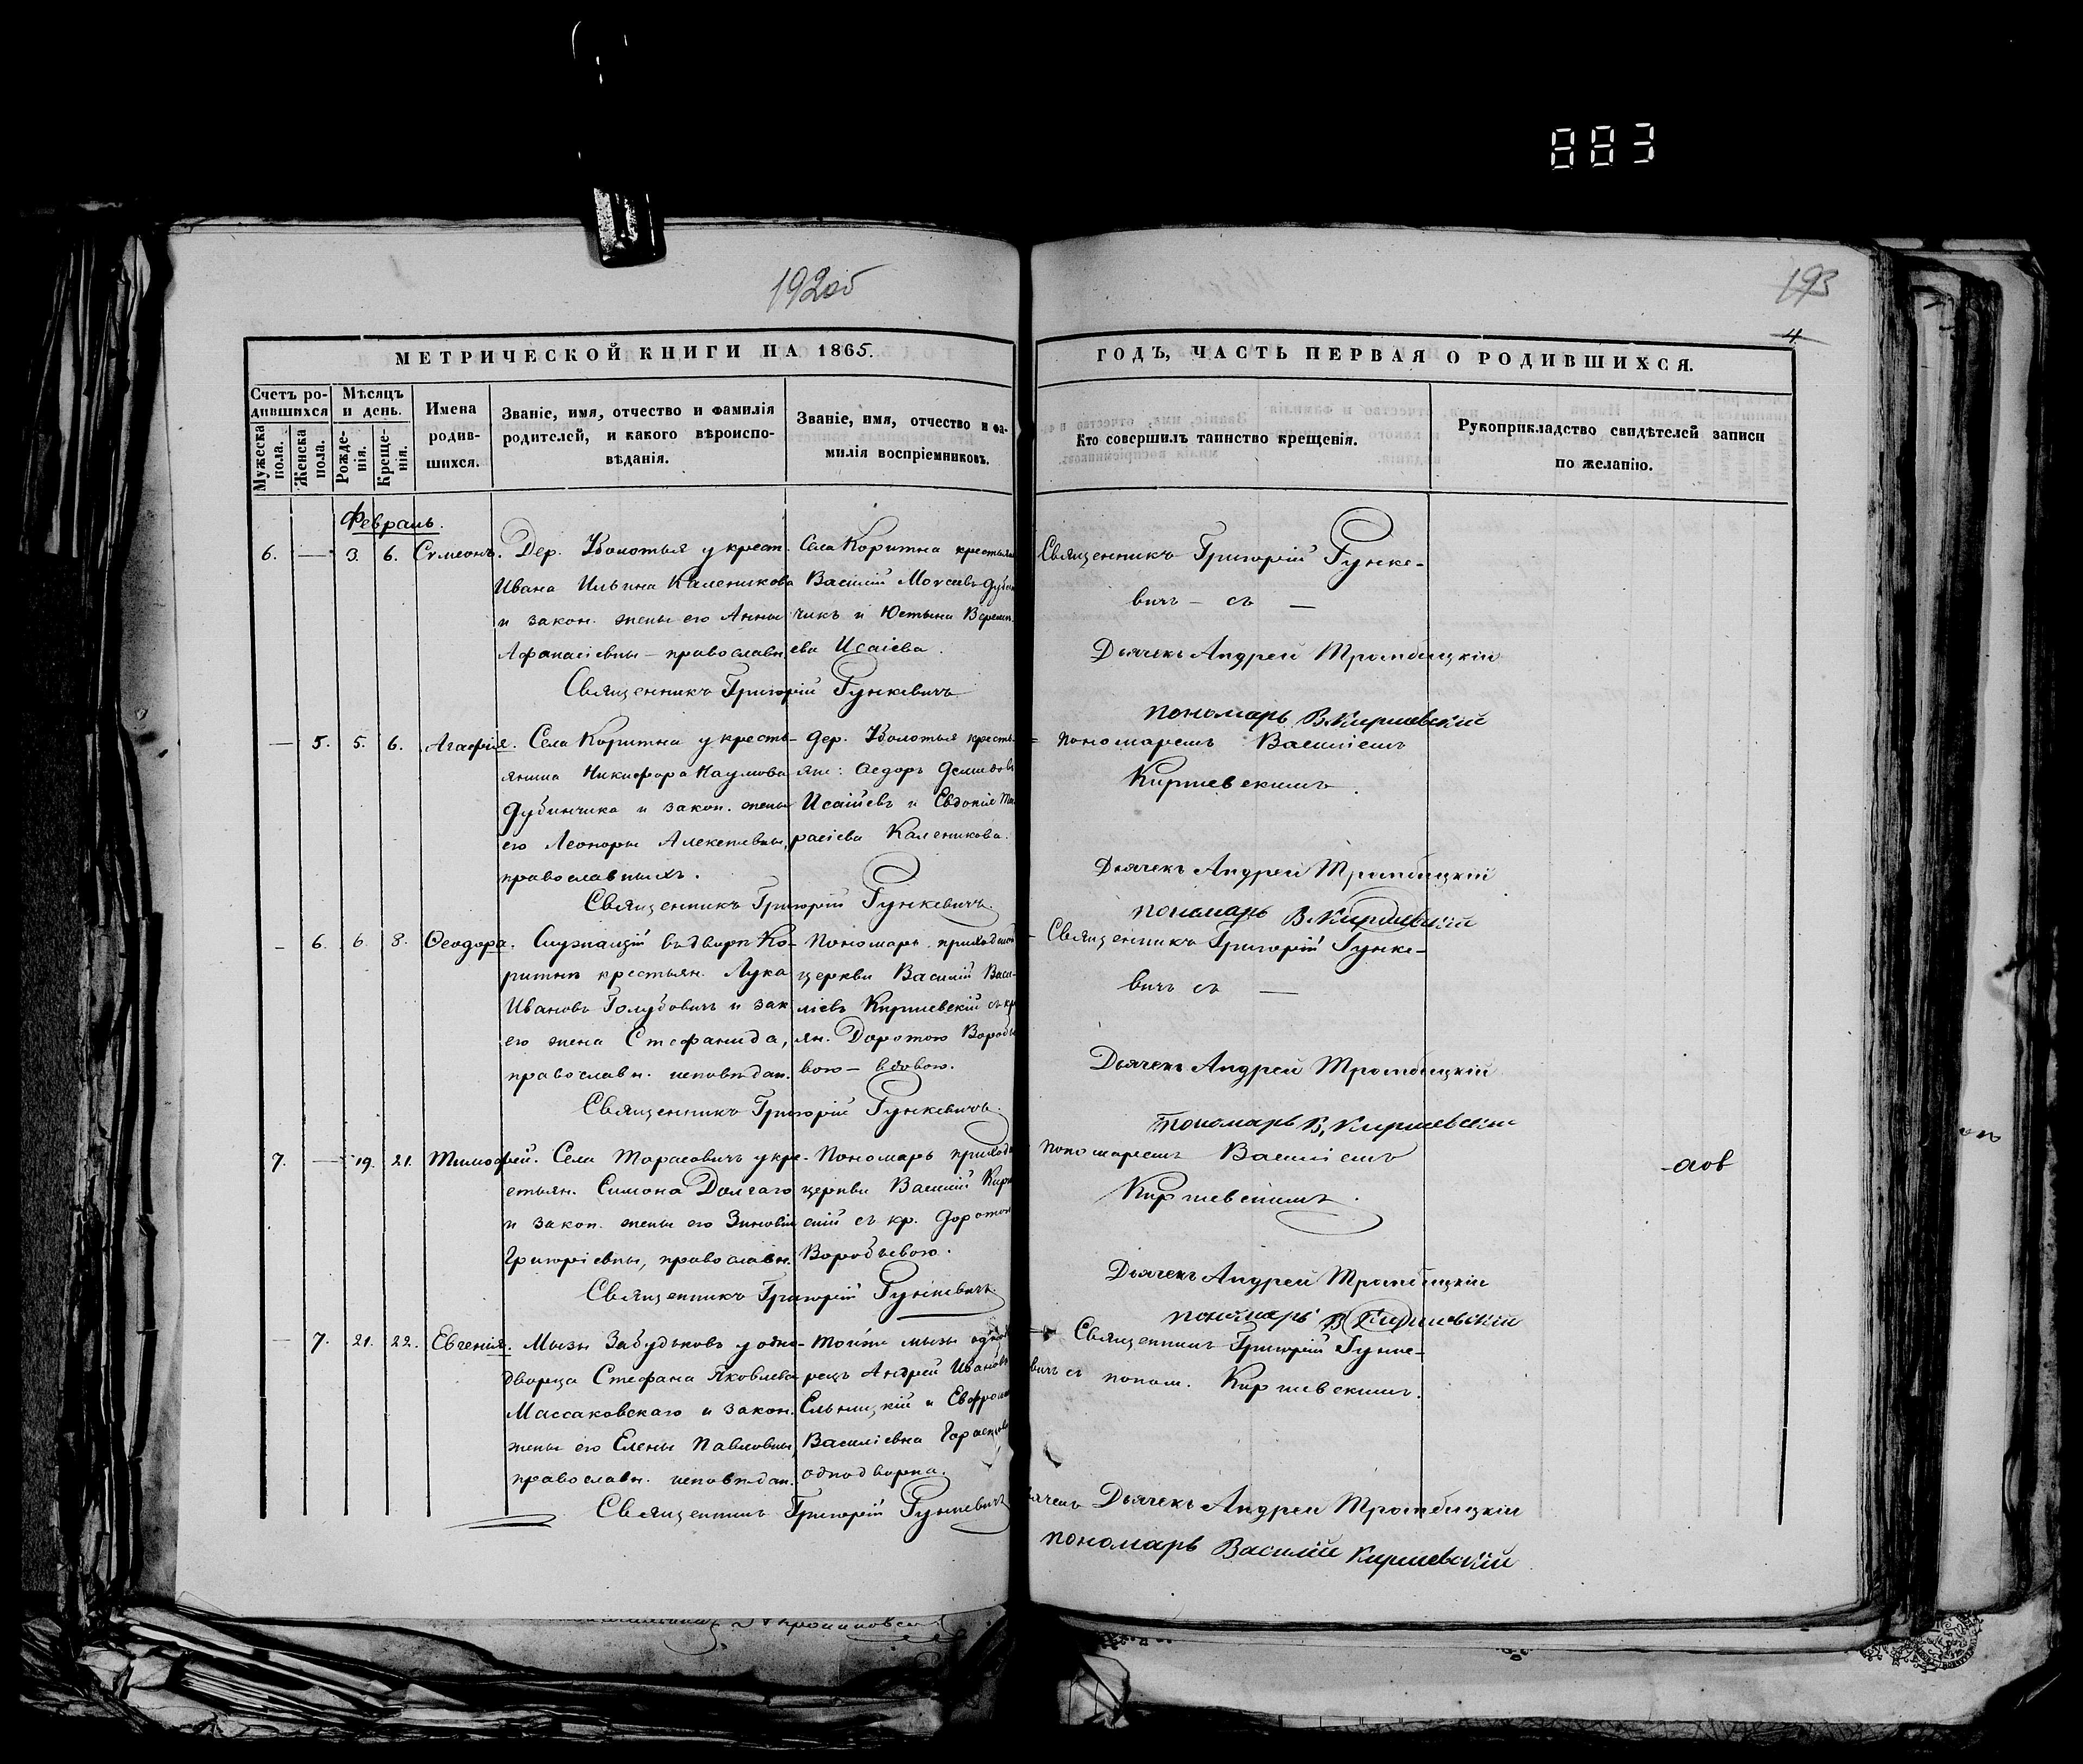 883
192об
193
4
МЕТРИЧЕСКОЙ КНИГИ НА 1865.
ГОДЪ, ЧАСТЬ ПЕРВАЯ О РОДИВШИХСЯ.
Счетъ родившихся
Мужеска пола.
Женска пола.
Мѣсяцъ и день.
Рожденія.
Крещенія.
Имена родившихся.
Званіе, имя, отчество и фамилія родителей, и какого вѣроисповѣданія.
Званіе, имя, отчество и фамилія воспріемниковъ.
Кто совершилъ таинство крещенія.
Рукоприкладство свидѣтелей записи по желанію.
Февраль.
6. — 3. 6. Сѵмеонъ.
Дер. у крест.
Ивана Ильина Каленикова
и закон. жены его Анны
Афанасіевны – православн
Села Коритна крестьян
Василій Моѵсеевъ
чикъ и Юстына
ева Исаіева.
Священникъ Григорій Гункевичъ
Священникъ Григорій Гунке-
вичъ – съ —
Дьячекъ Андрей Тромбицкій
пономарь В. Киршевскій
— 5. 5. 6. Агафія.
Села Коритна у кресть-
янина Никифора Наумова
Дубинчика и закон. жены
его Леоноры Алексѣевны,
православныхъ.
дер. кресть-
ян: Ѳедоръ
Исаіевъ и Евдокія
расіева Каленикова.
Священникъ Григорій Гункевичъ.
пономаремъ Василіемъ
Киршевскимъ.
Дьячекъ Андрей Тромбицкій
пономарь В. Киршевскій
— 6. 6. 8. Ѳеодора.
Служащій въ дворѣ Ко-
ритнѣ крестьян. Лука
Ивановъ Голубовичъ и зак
его жена Стефанида,
православн. исповѣдан.
Пономарь приходской
церкви Василій Васи-
ліевъ Киршевскій съ кр
ян. Доротою
вою – вдовою.
Священникъ Григорій Гункевичъ.
Священникъ Григорій Гунке-
вичъ съ —
Дьячекъ Андрей Тромбицкій
пономарь В. Киршевскій
7. — 19. 21. Тимофей.
Села Тарасовичъ у кре-
стьян. Симона Долгаго
и закон. жены его Зиновіи
Григоріевны, православн.
Пономарь приход
церкви Василій Кирш
скій съ кр. Доротою
Воробьевою.
Священникъ Григорій Гункевичъ.
пономаремъ Василіемъ
Киршевскимъ.
Дьячекъ Андрей Тромбицкій
пономарь В. Киршевскій
— 7. 21. 22. Евгенія.
Мызы Забудьковъ у одно-
дворца Стефана Яковлева
Массаковскаго и закон.
жены его Елены Павловны,
православн. исповѣдан.
тойже мызы однод
рецъ Андрей Ивановъ
Ельницкій и
Василіевна
однодворка.
Священникъ Григорій Гункевичъ
Священникъ Григорій Гунке-
вичъ съ поном. Киршевскимъ.
Дьячекъ Андрей Тромбицкій
пономарь Василій Киршевскій